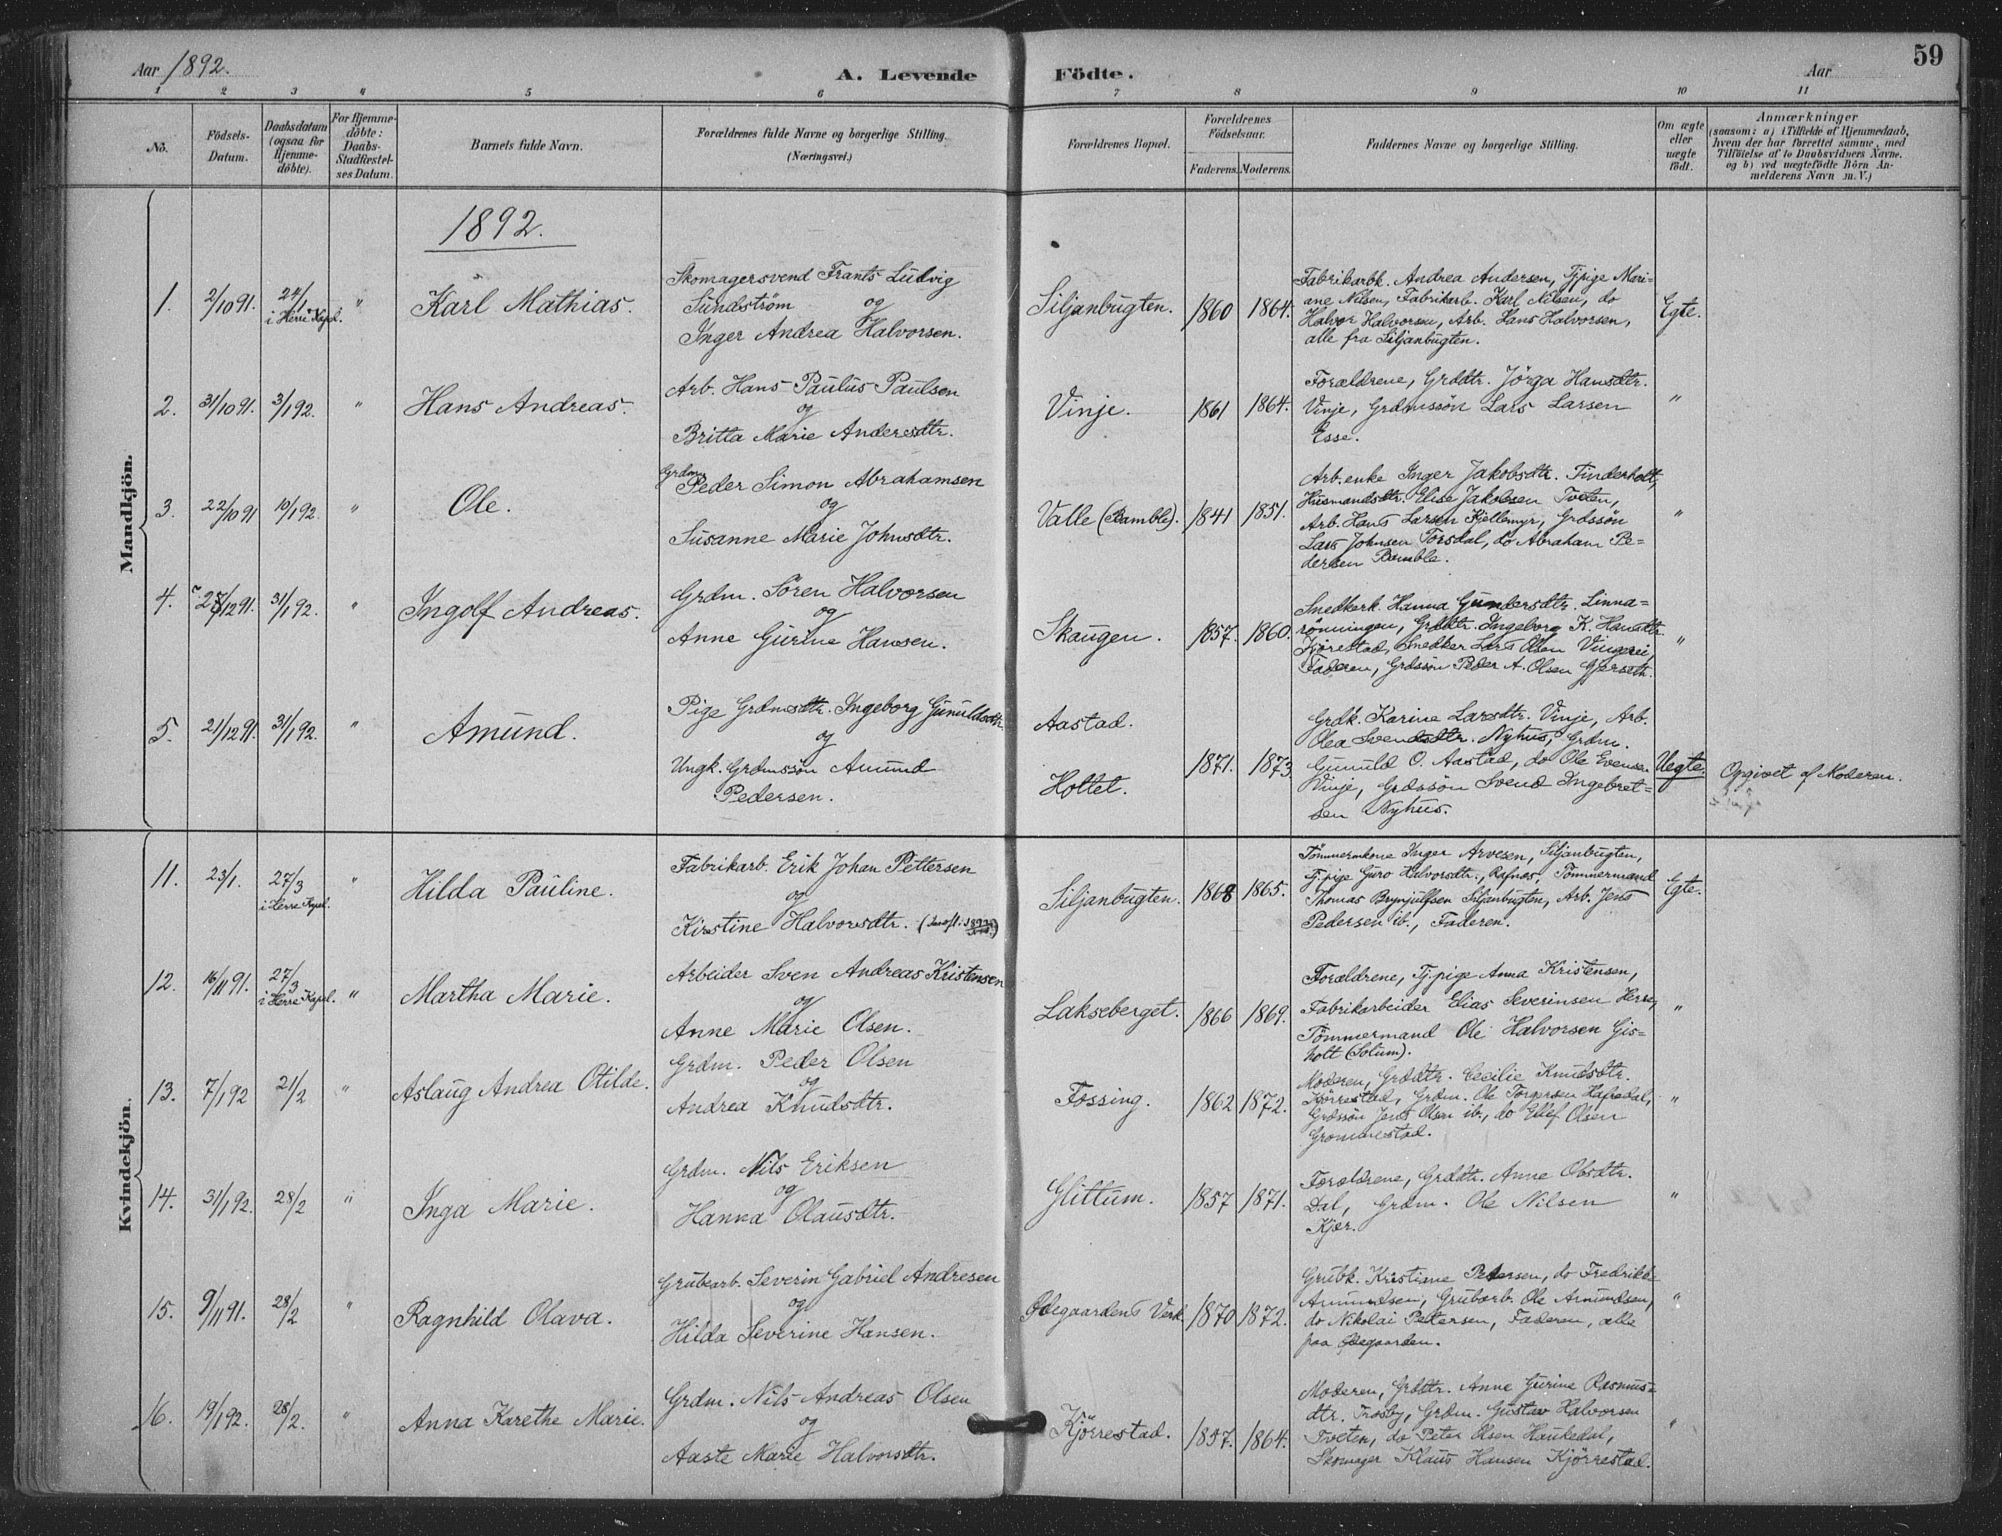 Aar 1892.
A. Levende Födte.
Aar
59
1 2 3 4 5 6 7 8 9 10 11
No.
Födsels-
Datum.
Daabsdatum
(ogsaa for
Hjemme-
döbte).
For Hjemme-
döbte:
Daabs-
Stadfæstel-
ses Datum.
Barnets fulde Navn.
Forældrenes fulde Navne og borgerlige Stilling.
(Næringsvei.)
Forældrenes Bopæl.
Forældrenes
Födselsaar.
Faderens. Moderens.
Faddernes Navne og borgerlige Stilling.
Om ægte
eller
uægte
födt.
Anmærkninger
(saasom: a) i Tilfælde af Hjemmedaab,
hvem der har forrettet samme, med
Tilföielse af to Daabsvidners Navne.
og b) ved uægtefödte Börn An-
melderens Navn m. V.)
Mandkjön.
1892.
1.
2/10 91.
24/1
i Herre Kapel.
"
Karl Mathias.
Skomagersvend Frants Ludvig
Sundström og
Inger Andrea Halvorsen.
Siljanbugten.
1860
1864.
Fabrikarbk. Andrea Andersen, Tjpige Mari-
ane Nilsen, Fabrikarb. Karl Nilsen, do
Halvor Halvorsen, Arb. Hans Halvorsen,
alle fra Siljanbugten.
Egte.
2.
31/10 91.
3/1 92.
"
Hans Andreas.
Arb. Hans Paulus Paulsen
og
Britta Marie Andersdtr.
Vinje.
1861
1864.
Forældrene, Grddtr. Jörga Hansdtr.
Vinje, Grdmssön Lars Larsen
Esse.
"
3.
22/10 91
10/1 92.
"
Ole.
Grdm.
Peder Simon Abrahamsen
og
Susanne Marie Johnsdtr.
Valle (Bamble).
1841
1851.
Arb.enke Inger Jakobsdtr. Tinderholt,
Husmandsdtr. Elise Jakobsen Tveten,
Arb. Hans Larsen Kjellemyr, Grdssön
Lars Johnsen Torsdal, do Abraham Pe-
dersen Bamble.
"
4.
/12 91.
31/1 92.
"
Ingolf Andreas.
Grdm. Sören Halvorsen
og
Anne Gurine Hansen.
Skaugen.
1857.
1860.
Snedkerk. Hanna Gundersdtr. Linna-
rönningen, Grddtr. Ingeborg K. Hansdtr.
Kjörestad, Snedker Lars Olsen Vingerei,
Faderen, Grdssön Peder A. Olsen Gjerseth.
"
5.
21/12 91.
31/1 92.
"
Amund.
Pige Grdmsdtr. Ingeborg Gunuldsdtr.
og
Ungk. Grdmssön Amund
Pedersen.
Aastad.
Hottet.
1871.
1873.
Grdk. Karine Larsdtr. Vinje, Arb.
Olea Svendsdtr. Nyhus, Grdm.
Gunuld O. Aastad, do Ole Evensen
Vinje, Grdssön Svend Ingebret-
sen Nyhus.
Uegte.
Opgivet af Moderen.
Kvindekjön.
11.
23/1.
27/3
i Herre Kapel.
"
Hilda Pauline.
Fabrikarb. Erik Johan Pettersen
og
Kirstine Halvorsdtr.
Siljanbugten.
1868
1865.
Tömmermkone Inger Arvesen, Siljanbugten,
Tj.pige Guro Halvorsdtr., Rafnæs, Tömmermand
Thomas Brynjulfsen Siljanbugten, Arb. Jens
Pedersen ib., Faderen.
Egte.
12.
16/11 91.
27/3
i Herre Kapel.
"
Martha Marie.
Arbeider Sven Andreas Kristensen
og
Anne Marie Olsen.
Lakseberget.
1866
1869.
Forældrene, Tj.pige Anna Kristensen,
Fabrikarbeider Elias Severinsen Herre,
Tömmermand Ole Halvorsen Gis-
holt (Solum).
"
13.
7/1 92
21/2
"
Aslaug Andrea Otilde.
Grdm. Peder Olsen
og
Andrea Knudsdtr.
Fossing.
1862
1872.
Moderen, Grddtr. Cecilie Knudsdtr.
Kjörrestad, Grdm. Ole Torgersen Hafredal,
Grdssön Jens Olsen ib., do Ellef Olsen
Grommestad.
"
14.
31/1 92.
28/2
"
Inga Marie.
Grdm. Nils Eriksen
og
Hanna Olausdtr.
Glittum.
1857
1871.
Forældrene, Grddtr. Anne Olsdtr.
Dal, Grdm. Ole Nilsen
Kjær.
"
15.
9/11 91.
28/2
"
Ragnhild Olava.
Grubearb. Severin Gabriel Andresen
og
Hilda Severine Hansen.
Ødegaardens Verk
1870
1872.
Grubk. Kristiane Petersen, do Fredrikke
Amundsen, Grubarb. Ole Amundsen,
do Nikolai Pettersen, Faderen, alle
paa Ødegaarden.
"
16.
19/1 92.
28/2.
"
Anna Karethe Marie.
Grdm. Nils Andreas Olsen
og
Aaste Marie Halvorsdtr.
Kjörrestad.
1857.
1864.
Moderen, Grddtr. Anne Gurine Rasmus-
dtr. Trosby, Grdm. Gustav Halvorsen
Tveten, do Peter Olsen Haukedal,
Skomager Klaus Hansen Kjörrestad.
"